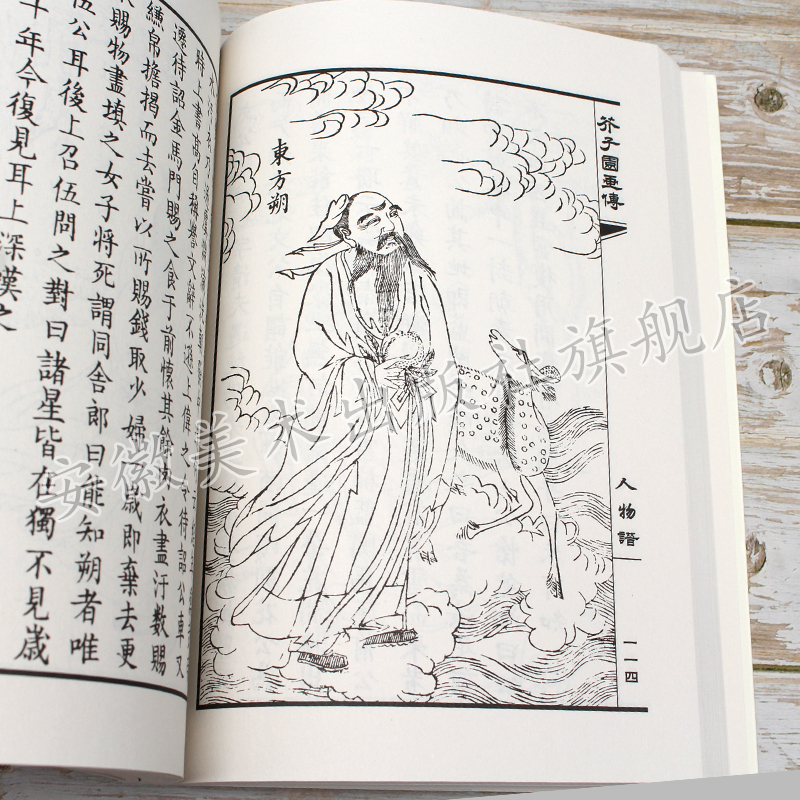 芥子園畫傳
東方朔
人物譜
一一四
特上書高自稱譽文辭不遜上偉之令待詔公車又
遷待詔金馬門賜之食于前懷其餘肉衣盡汙數賜
縑帛擔揭而去嘗以所賜錢取少婦一歲即棄去更
賜物盡填之女子將死謂同舍郎曰能知朔者唯
伍公耳後上召伍問之對曰諸星皆在獨不見歲
十年今復見耳上深嘆之
安徽美术出版社旗舰店